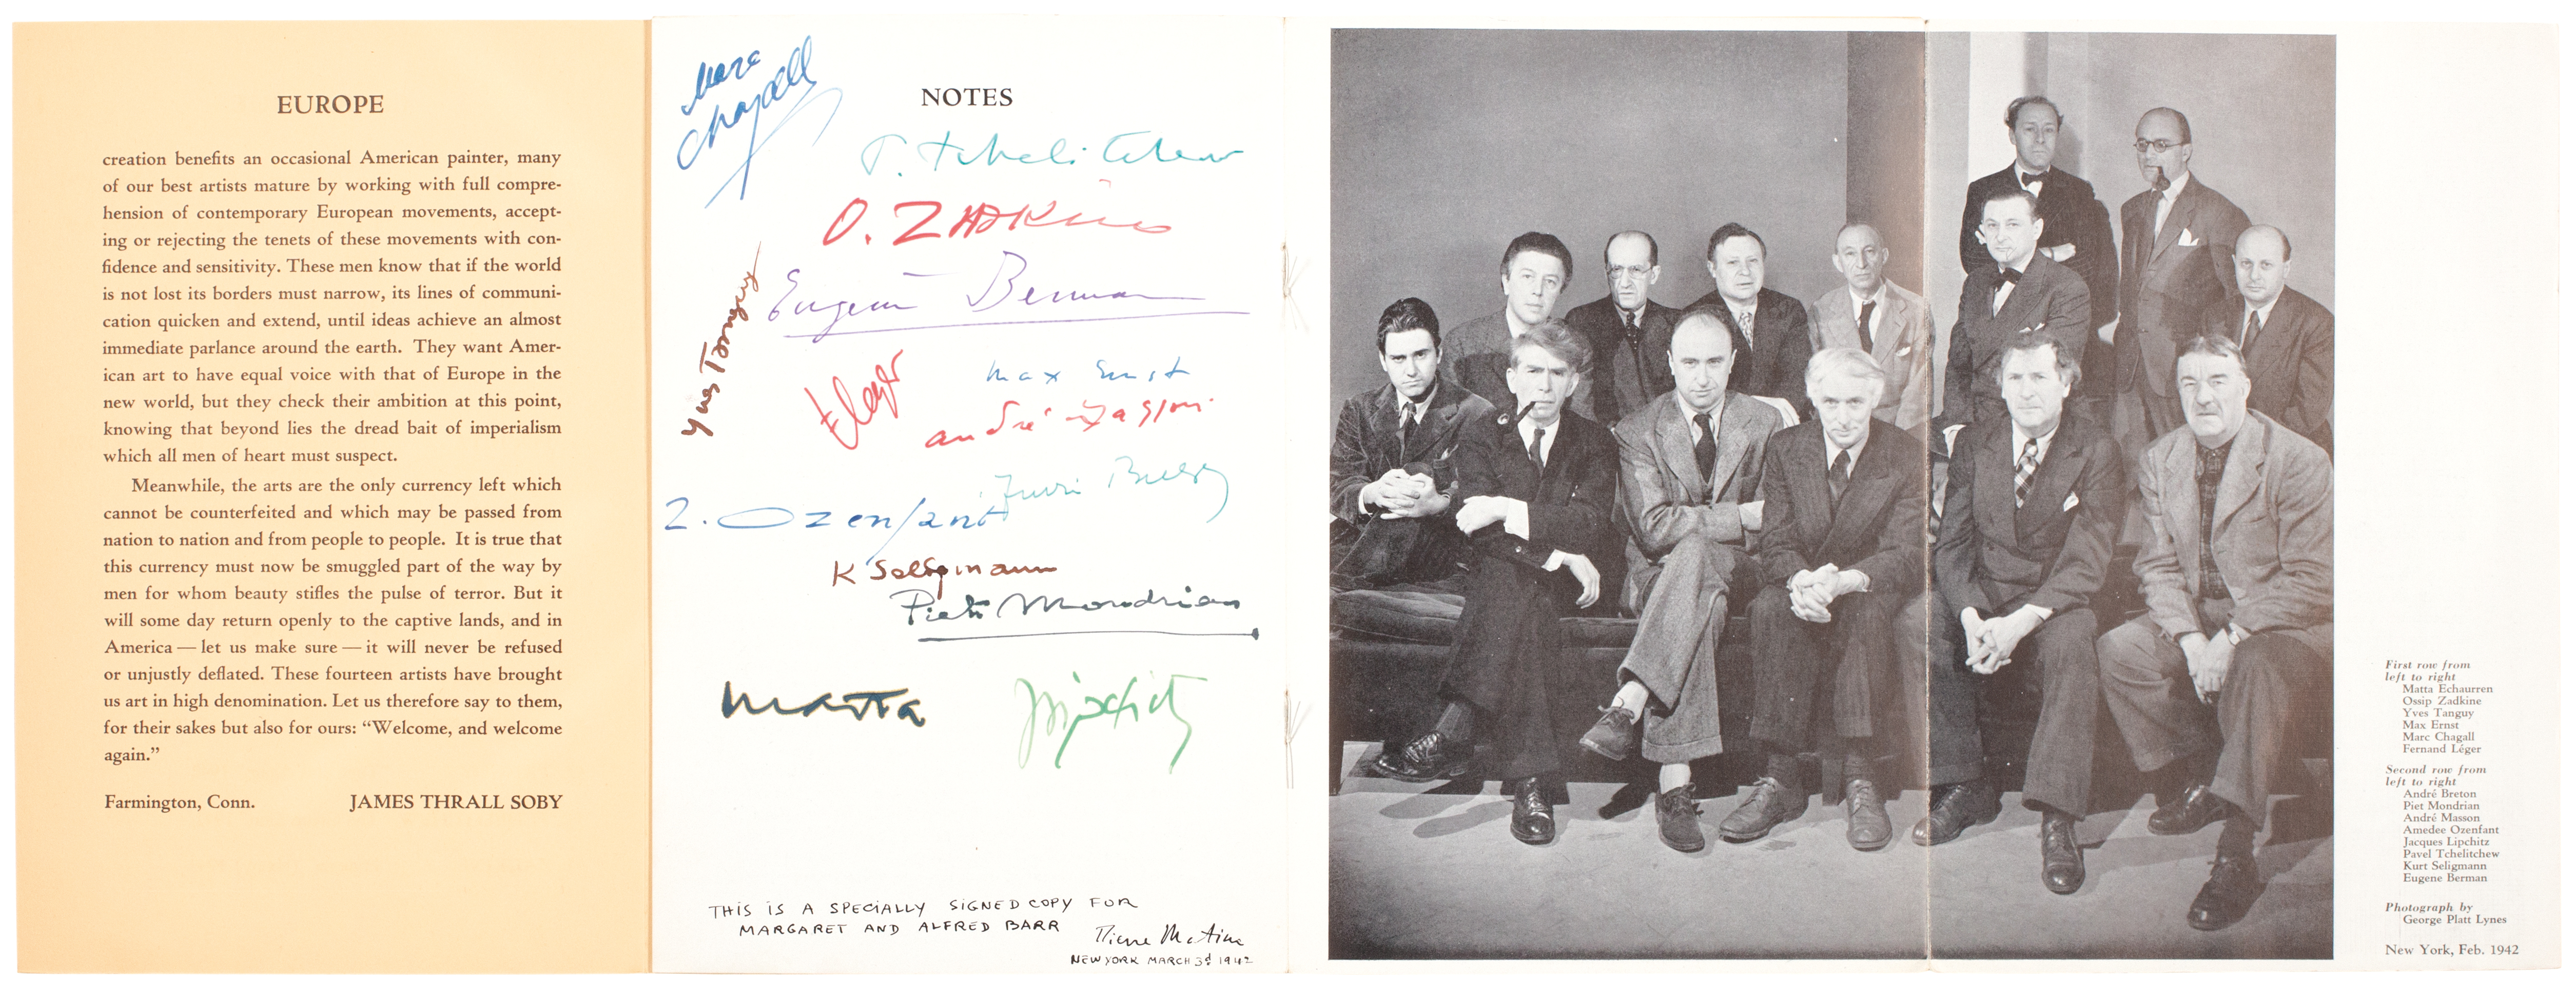 EUROPE
creation benefits an occasional American painter, many
of our best artists mature by working with full compre-
hension of contemporary European movements, accept-
ing or rejecting the tenets of these movements with con-
fidence and sensitivity. These men know that if the world
is not lost its borders must narrow, its lines of communi-
cation quicken and extend, until ideas achieve an almost
immediate parlance around the earth. They want Amer-
ican art to have equal voice with that of Europe in the
new world, but they check their ambition at this point,
knowing that beyond lies the dread bait of imperialism
which all men of heart must suspect.
Meanwhile, the arts are the only currency left which
cannot be counterfeited and which may be passed from
nation to nation and from people to people. It is true that
this currency must now be smuggled part of the way by
men for whom beauty stifles the pulse of terror. But it
will some day return openly to the captive lands, and in
America — let us make sure — it will never be refused
or unjustly deflated. These fourteen artists have brought
us art in high denomination. Let us therefore say to them,
for their sakes but also for ours: “Welcome, and welcome
again.”
Farmington, Conn. JAMES THRALL SOBY
Marc
Chagall
NOTES
P. Tchelitchew
O. ZADKINE
Eugene Berman
Yves Tanguy
F Leger
max Ernst
andré Masson
Ozenfant
K Seligmann
Piet Mondrian
matta
Lipchitz
THIS IS A SPECIALLY SIGNED COPY FOR
MARGARET AND ALFRED BARR
Pierre Matisse
NEW YORK MARCH 3d 1942
First row from
left to right
Matta Echaurren
Ossip Zadkine
Yves Tanguy
Max Ernst
Marc Chagall
Fernand Léger
Second row from
left to right
André Breton
Piet Mondrian
André Masson
Amedee Ozenfant
Jacques Lipchitz
Pavel Tchelitchew
Kurt Seligmann
Eugene Berman
Photograph by
George Platt Lynes
New York, Feb. 1942